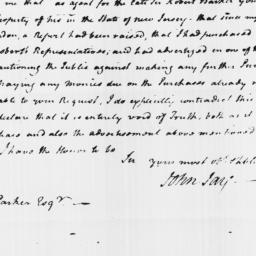 me that as agent for the late Sir Robert Barker you
property of his in the State of New Jersey. that since my
don, a Report had been raised, that I had purchased
obert's Representatives; and had advertized in one of th
autioning the Public against making any further Pur
paying any monies due on the Purchases already
able to your Request, I do explicitly contradict this
declare that it is entirely void of Truth, both as it
hase and also the advertisement above mentioned
I have the Honor to be
Sir your most ob
John Jay. —
Parker Esqr —